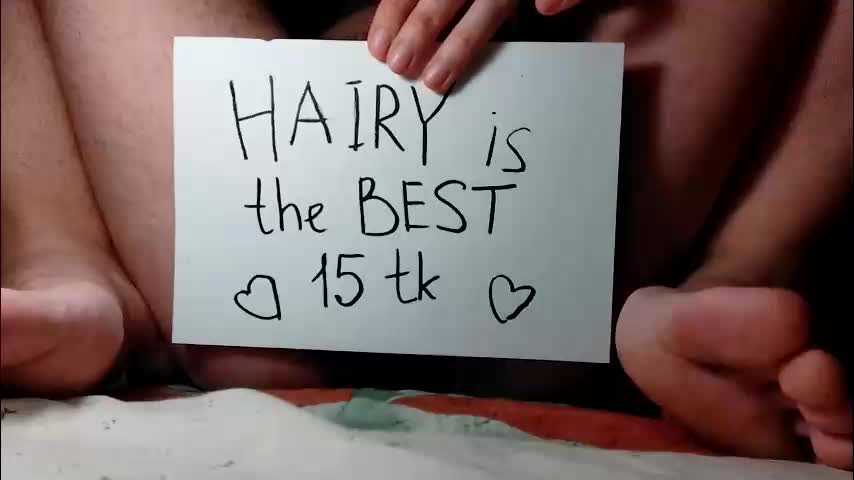 HAIRY is
the BEST
15 tk